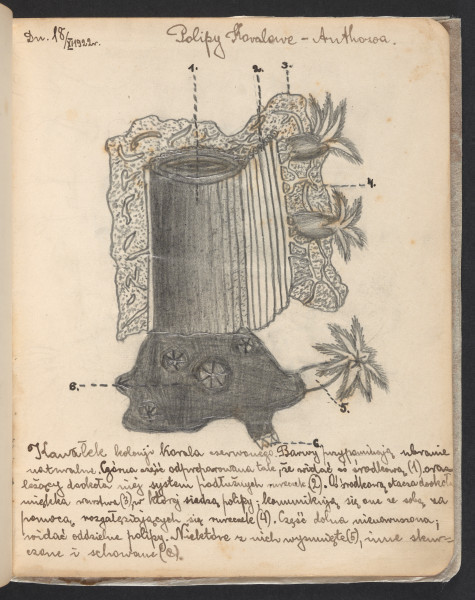 Dn. 18/XI 1922r.
Polipy Koralowe - Anthozoa.
1.
2.
3.
4.
8.
5.
6.
Kawałek kolonji korala czerwonego. Barwy przypominają ubranie
naturalne. Górna część odpreparowana tak, że widać oś środkową (1) oraz
leżący dookoła niej system podłużnych rureczek (2). Oś środkową otacza dookoła
miękka warstwa (3) w której siedzą polipy - komunikują się one ze sobą za
pomocą rozgałęziających się rureczek (4). Część dolna nienaruszona;
widać oddzielne polipy. Niektóre z nich wysunięte (5), inne skur-
czone i schowane (8).